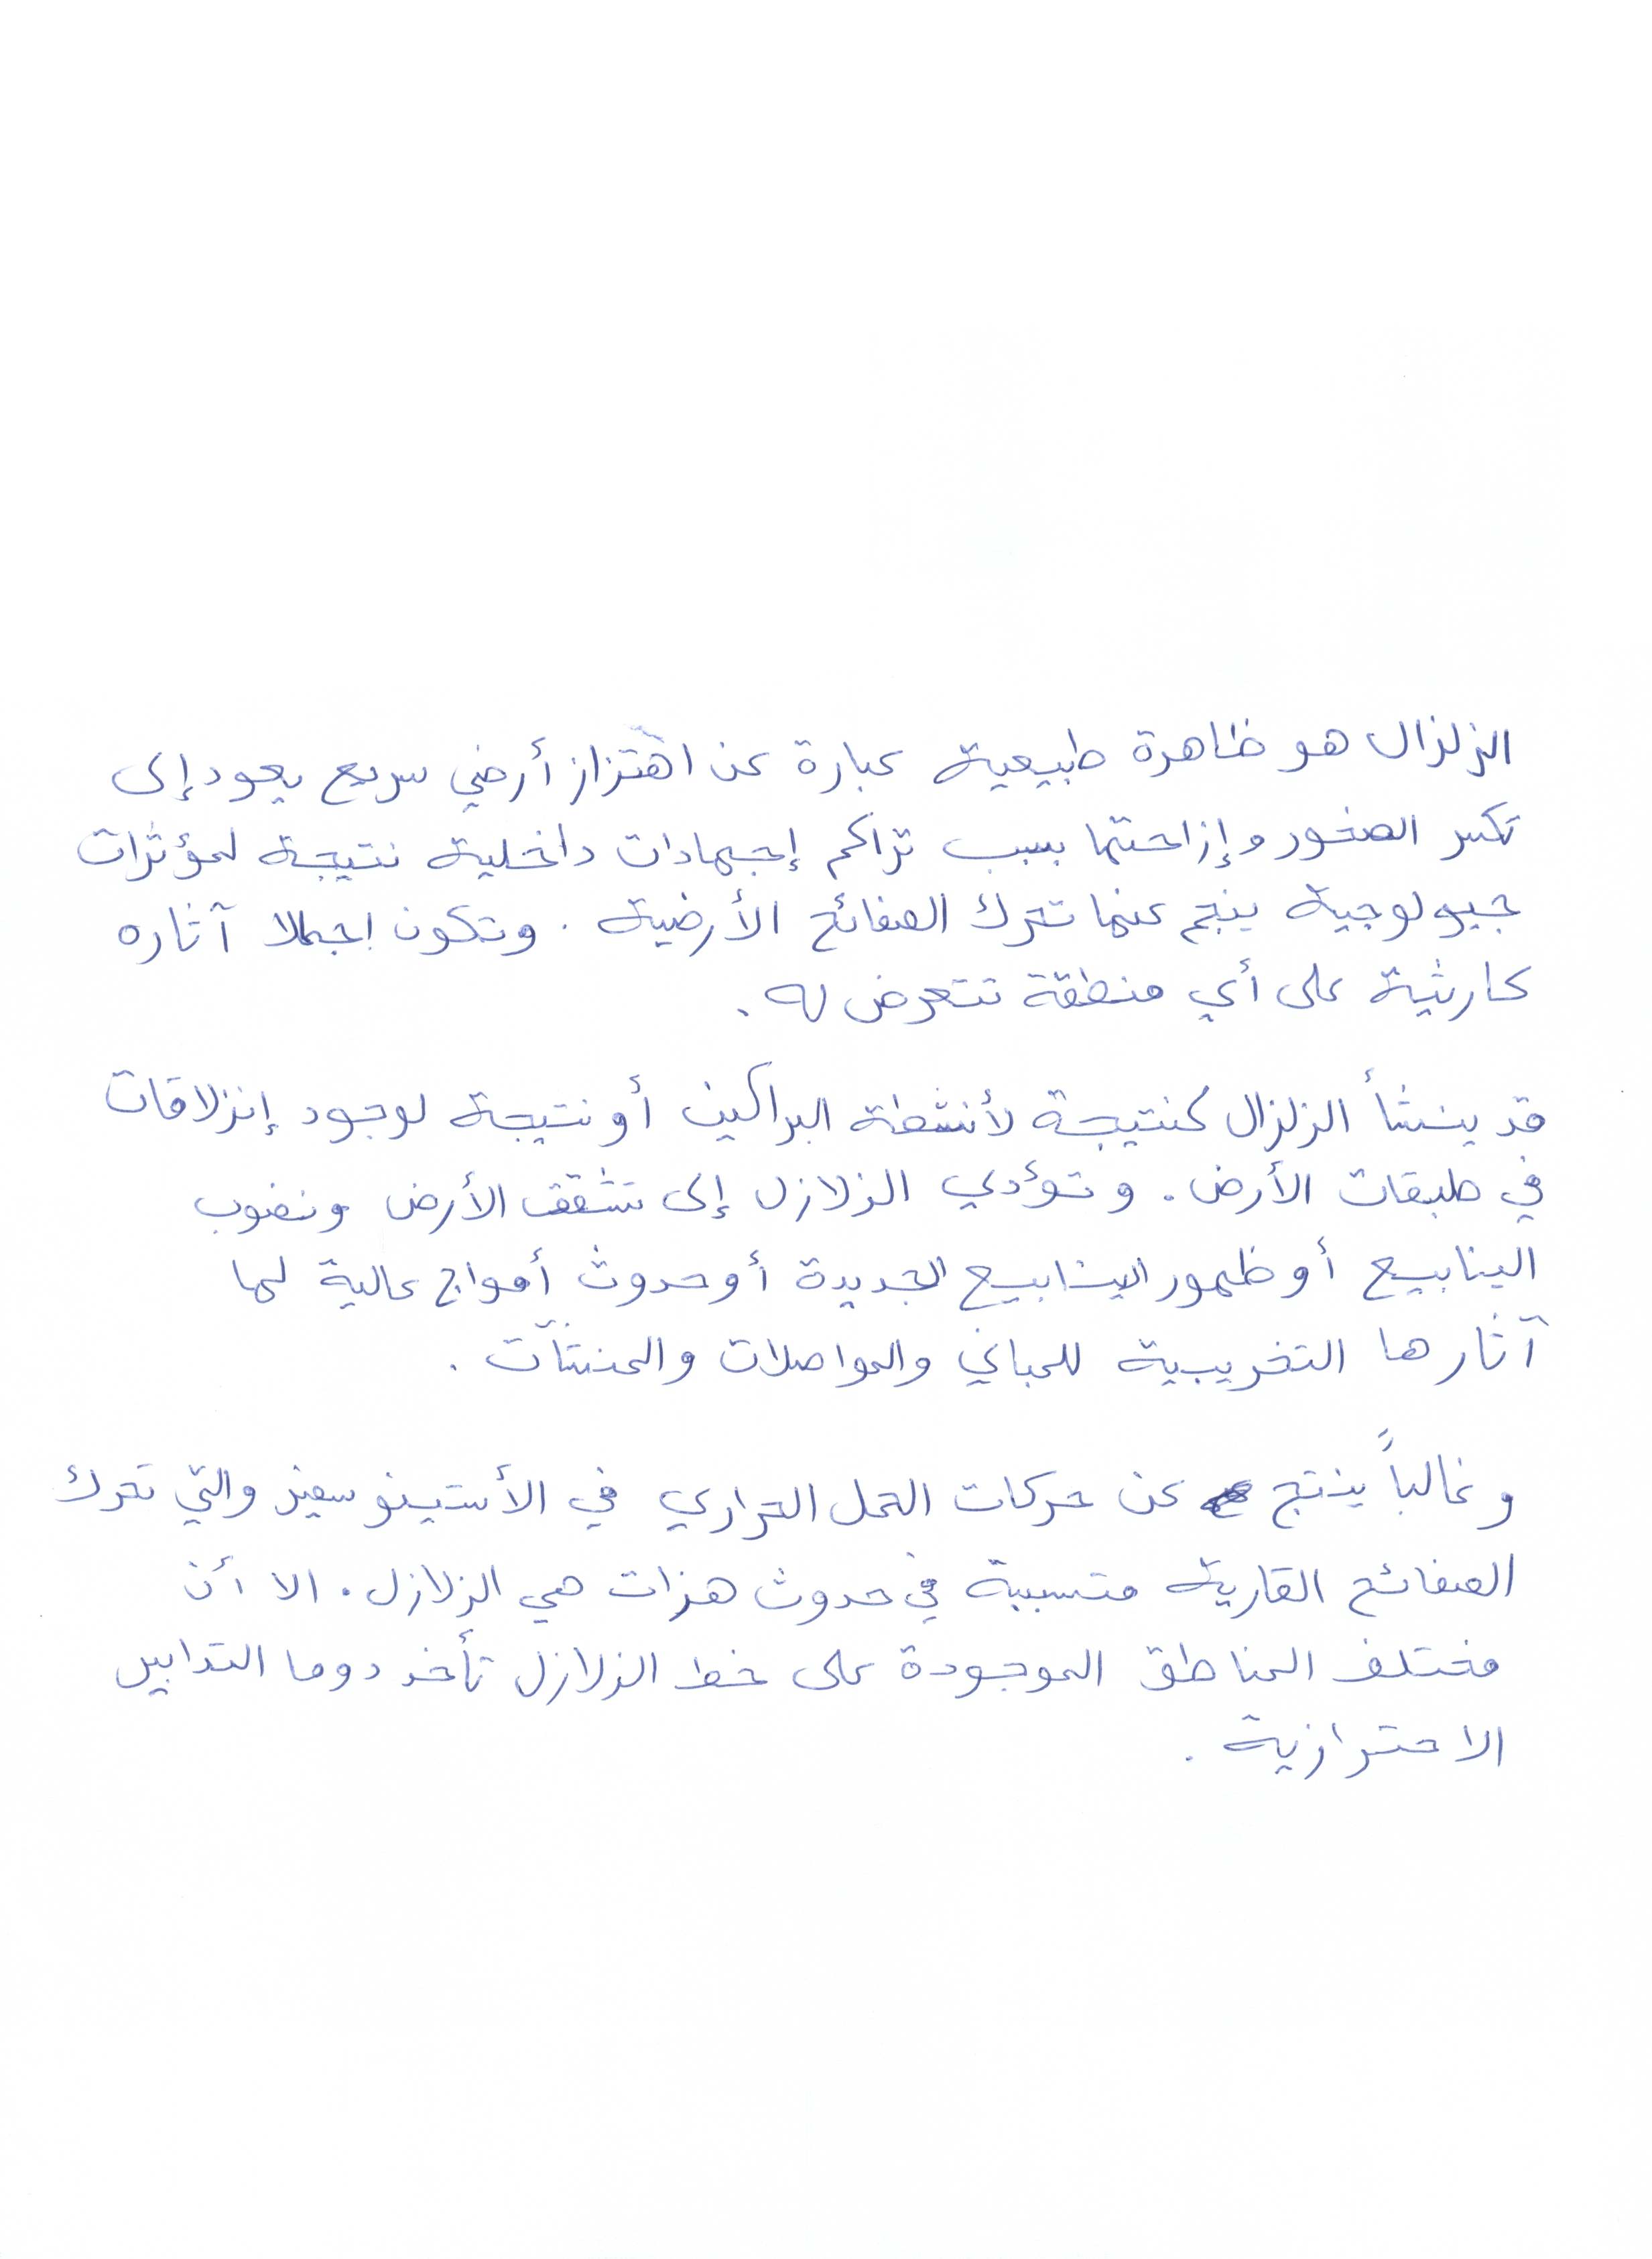 الزلزال هو ظاهرة طبيعية عبارة عن اهتزاز أرضي سريع يعود إلى
تكسر الصخور وإزاحتها بسبب تراكم إجهادات داخلية نتيجة لمؤثرات
جيولوجية ينجم عنها تحرك الصفائح الأرضية. وتكون اجمالا آثاره
كارثية على أي منطقة تتعرض له.
قد ينشأ الزلزال كنتيجة لأنشطة البراكين أو نتيجة لوجود إنزلاقات
في طبقات الأرض. وتؤدي الزلازل إلى تشقق الأرض ونضوب
الينابيع أو ظهور الينابيع الجديدة أو حدوث أمواج عالية لها
آثارها التخريبية للمباني والمواصلات والمنشآت.
وغالباً ينتج عن حركات الحمل الحراري في الأستينوسفير والتي تحرك
الصفائح القارية متسببة في حدوث هزات هي الزلازل. الا أن
مختلف المناطق الموجودة على خط الزلازل تأخد دوما التدابير
الاحترازية.